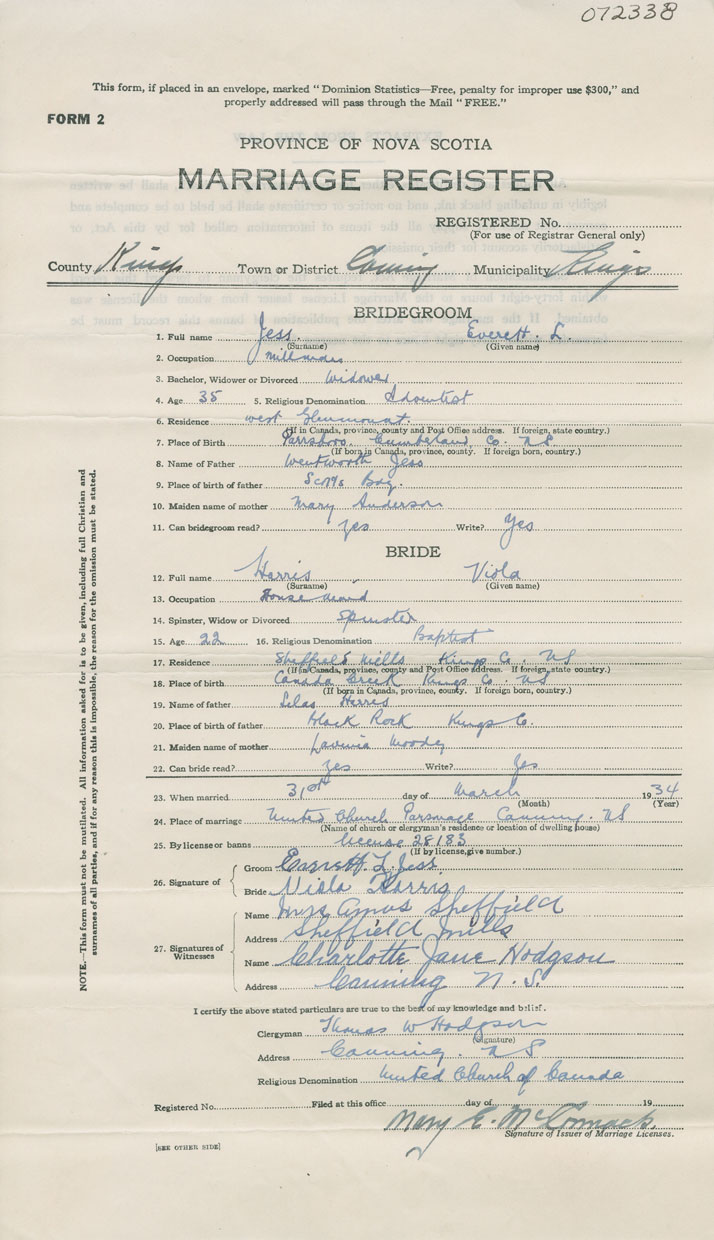 072338
This form, if placed in an envelope, marked "Dominion Statistics—Free, penalty for improper use $300," and
properly addressed will pass through the Mail "FREE."
FORM 2
PROVINCE OF NOVA SCOTIA
MARRIAGE REGISTER
REGISTERED No.
(For use of Registrar General only)
County Kings Town or District Canning Municipality Kings
BRIDEGROOM
1. Full name Jess Everett L.
(Surname) (Given name)
2. Occupation Millman
3. Bachelor, Widower or Divorced Widower
4. Age 35 5. Religious Denomination Adventist
6. Residence West Glenmount.
(If in Canada, province, county and Post Office address. If foreign, state country.)
7. Place of Birth Parrsboro. Cumberland Co. NS
(If born in Canada, province, county. If foreign born, country.)
8. Name of Father Wentworth Jess
9. Place of birth of father Scotts Bay.
10. Maiden name of mother Mary Anderson
11. Can bridegroom read? yes Write? Yes
BRIDE
12. Full name Harris Viola
(Surname) (Given name)
13. Occupation House maid
14. Spinster, Widow or Divorced Spinster
15. Age 22 16. Religious Denomination Baptist
17. Residence Sheffield Mills Kings Co. NS
(If in Canada, province, county and Post Office address. If foreign, state country.)
18. Place of birth Canada Creek Kings Co. NS
(If born in Canada, province, county. If foreign born, country.)
19. Name of father Silas Harris
20. Place of birth of father Black Rock Kings Co.
21. Maiden name of mother Lavinia Moody
22. Can bride read? yes Write? yes
23. When married 31st day of March 1934
(Month) (Year)
24. Place of marriage United Church Parsonage Canning. NS
(Name of church or clergyman's residence or location of dwelling house)
25. By license or banns license 28183
(If by license, give number.)
26. Signature of
Groom Everett L. Jess
Bride Viola Harris
27. Signatures of Witnesses
Name Mrs Amos Sheffield
Address Sheffield Mills
Name Charlotte Jane Hodgson
Address Canning N. S.
I certify the above stated particulars are true to the best of my knowledge and belief.
Clergyman Thomas W Hodgson
(Signature)
Address Canning. NS
Religious Denomination United Church of Canada
Registered No. Filed at this office day of 19
Mary E. McCormack.
Signature of Issuer of Marriage Licenses.
[SEE OTHER SIDE]
NOTE.—This form must not be mutilated. All information asked for is to be given, including full Christian and
surnames of all parties, and if for any reason this is impossible, the reason for the omission must be stated.